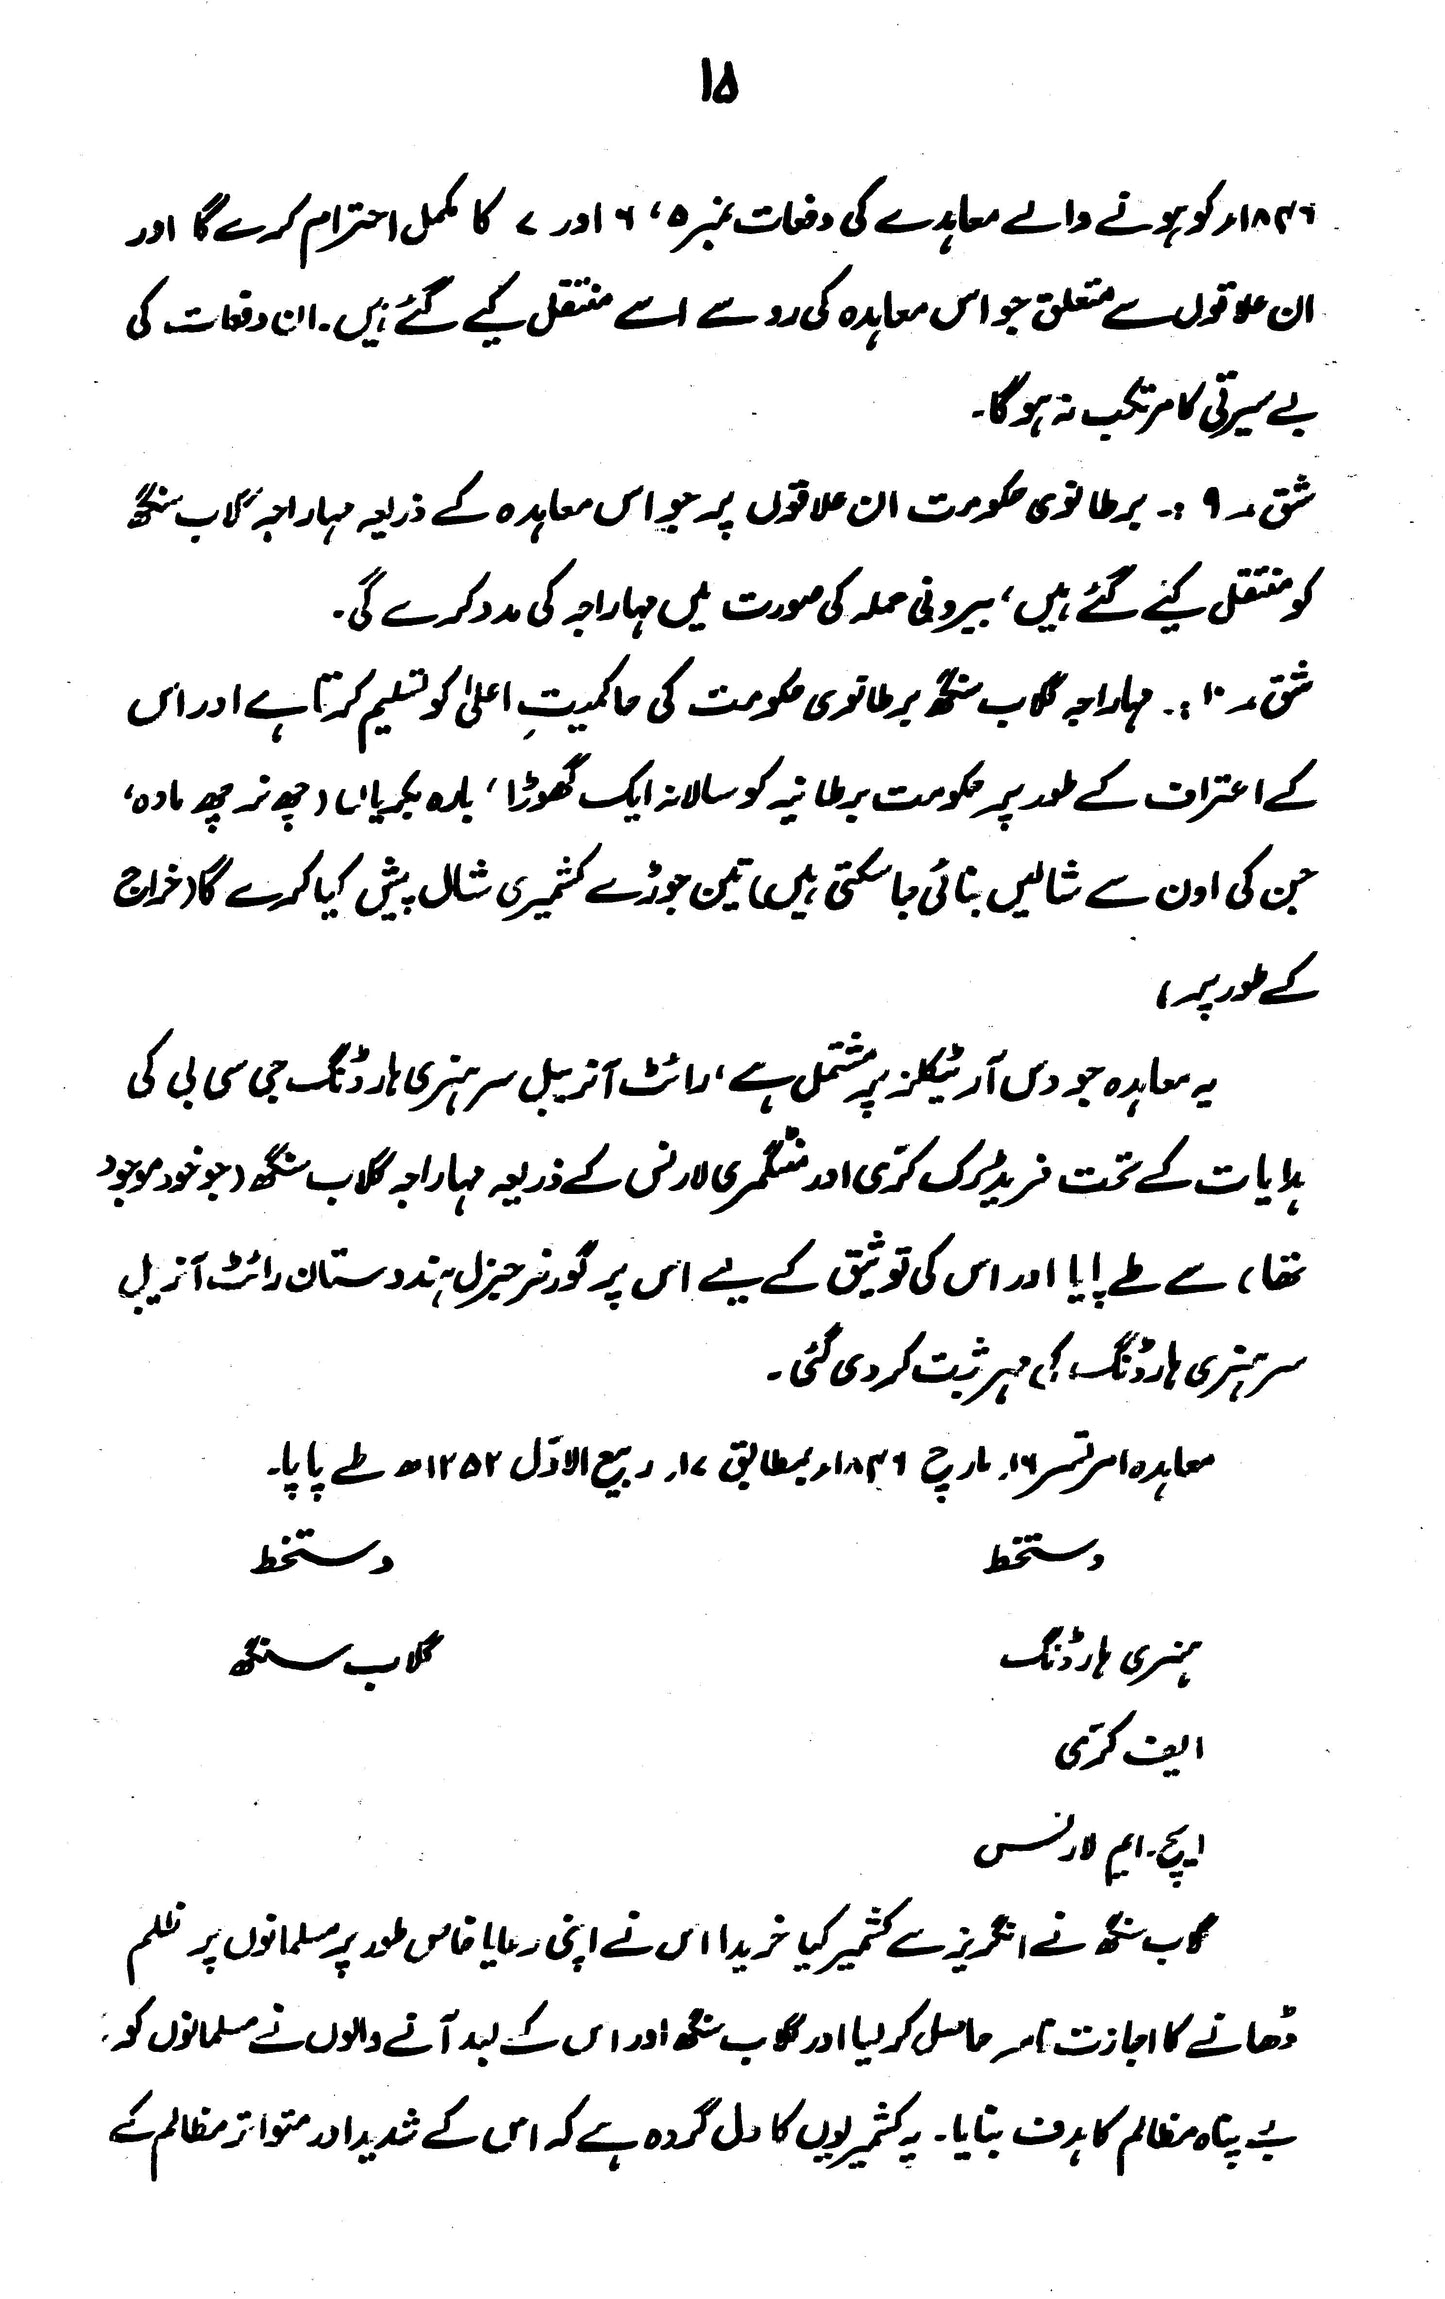 ۱۵
۱۸۴۶ء کو ہونے والے معاہدے کی دفعات نمبر ۵، ۶ اور ۷ کا مکمل احترام کرے گا اور
ان علاقوں سے متعلق جو اس معاہدہ کی رو سے اسے منتقل کیے گئے ہیں۔ ان دفعات کی
بے سیرتی کا مرتکب نہ ہو گا۔
شق ۔ ۹ :۔ برطانوی حکومت ان علاقوں پر جو اس معاہدہ کے ذریعہ مہاراجہ گلاب سنگھ
کو منتقل کئے گئے ہیں، بیرونی حملہ کی صورت میں مہاراجہ کی مدد کرے گی۔
شق ۔ ۱۰ :۔ مہاراجہ گلاب سنگھ برطانوی حکومت کی حاکمیتِ اعلیٰ کو تسلیم کرتا ہے اور اس
کے اعتراف کے طور پر حکومت برطانیہ کو سالانہ ایک گھوڑا، بارہ بکریاں (چھ نر چھ مادہ،
جن کی اون سے شالیں بنائی جا سکتی ہیں) تین جوڑے کشمیری شال پیش کیا کرے گا (خراج
کے طور پر)
یہ معاہدہ جو دس آرٹیکلز پر مشتمل ہے، رائٹ آنریبل سر ہنری ہارڈنگ جی سی بی کی
ہدایات کے تحت فریڈرک کرّی اور منٹگمری لارنس کے ذریعہ مہاراجہ گلاب سنگھ (جو خود موجود
تھا) سے طے پایا اور اس کی توثیق کے لیے اس پر گورنر جنرل ہندوستان رائٹ آنریبل
سر ہنری ہارڈنگ کی مہر ثبت کر دی گئی۔
معاہدہ امرتسر ۱۶ مارچ ۱۸۴۶ء بمطابق ۱۷ ربیع الاوّل ۱۲۵۲ھ طے پایا۔
دستخط دستخط
ہنری ہارڈنگ گلاب سنگھ
ایف کرّی
ایچ۔ ایم لارنس
گلاب سنگھ نے انگریز سے کشمیر کیا خریدا اس نے اپنی رعایا خاص طور پر مسلمانوں پر ظلم
ڈھانے کا اجازت نامہ حاصل کر لیا اور گلاب سنگھ اور اس کے بعد آنے والوں نے مسلمانوں کو
بے پناہ مظالم کا ہدف بنایا۔ یہ کشمیریوں کا دل گردہ ہے کہ اس کے شدید اور متواتر مظالم کے